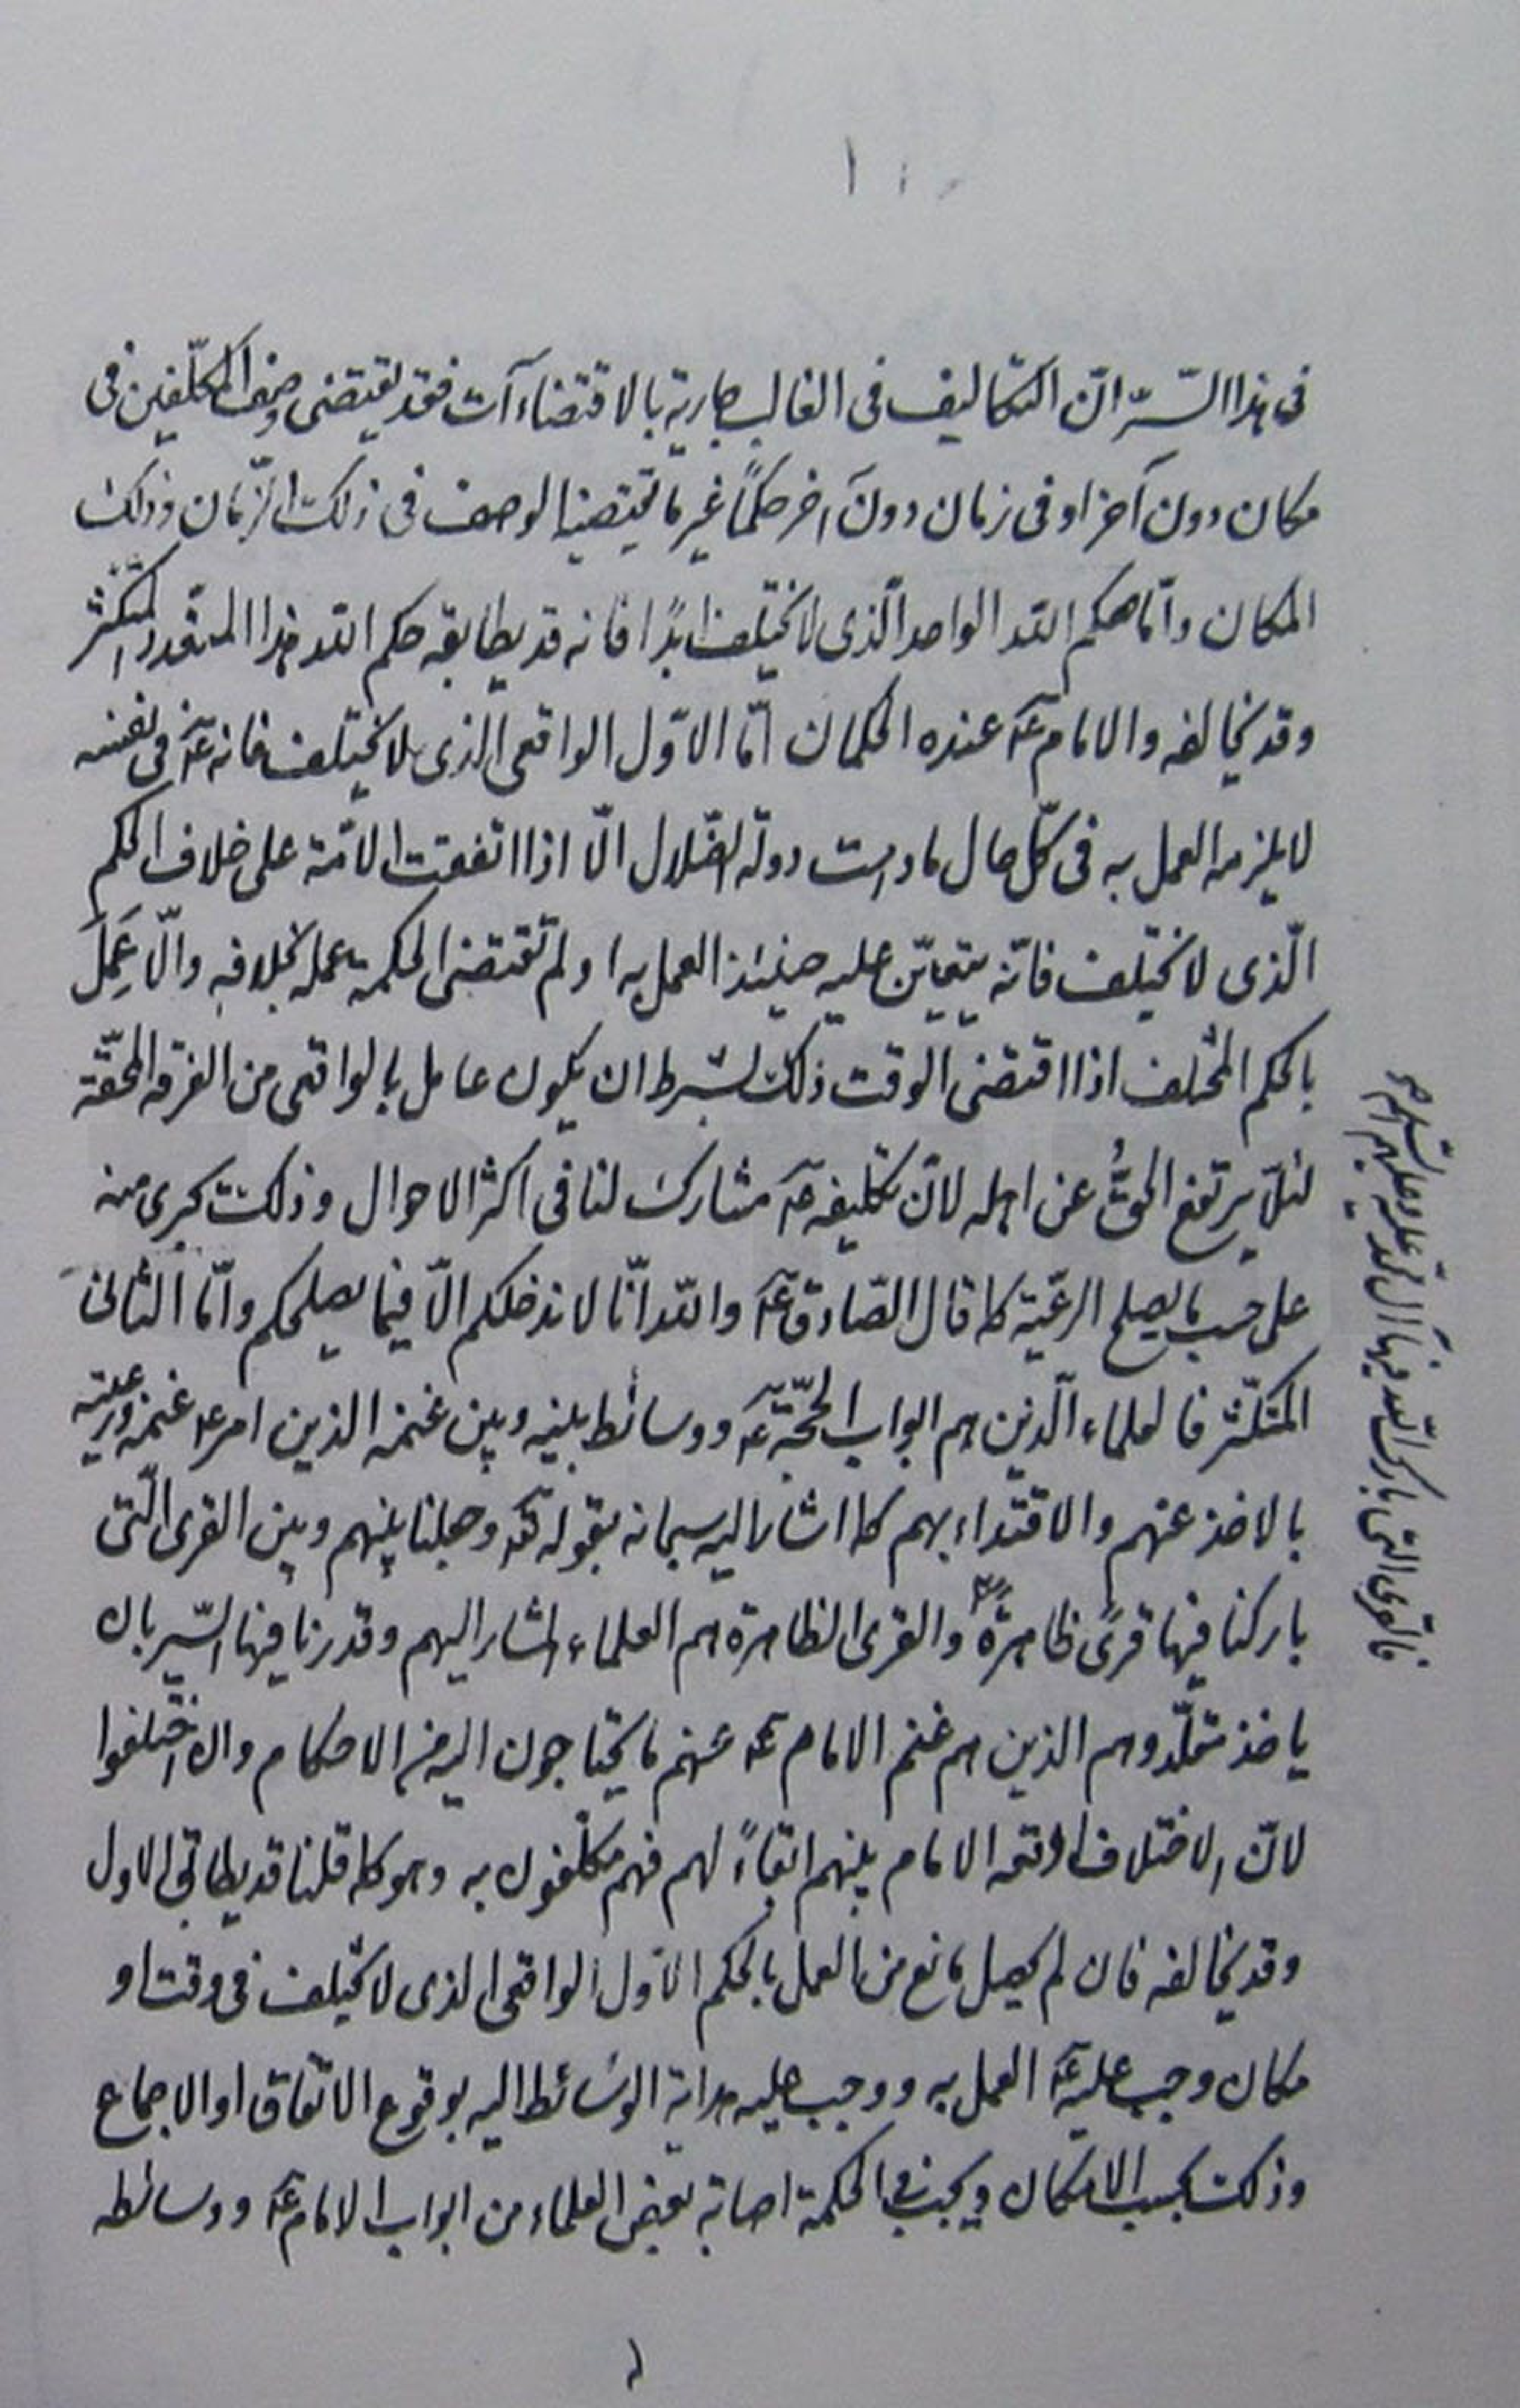 فى هذا السّرّ انّ التكاليف فى الغالب جارية بالاقتضاءآت فقد يقتضى وصف المكلّفين فى
مكان دون آخر او فى زمان دون آخر حكمًا غير ما يقتضيه الوصف فى ذلك الزّمان وذلك
المكان وامّا حكم الله الواحد الّذى لا يختلف ابدًا فانه قد يطابقه حكم الله هذا المتعدد المتكثر
وقد يخالفه والامام عؔ عنده الحكمان امّا الاوّل الواقعى الذى لا يختلف فانه عؔ فى نفسه
لا يلزمه العمل به فى كلّ حال ما دامت دولة الضّلال الّا اذا اتفقت الامّة على خلاف الحكم
الّذى لا يختلف فانّه يتعيّن عليه حينئذ العمل به او لم تقتضى الحكمة عمله بخلافه والّا عَمِلَ
بالحكم المختلف اذا اقتضى الوقت ذلك بشرط ان يكون عامل بالواقعى من الفرقة المحقّة
لئلّا يرتفع الحقُّ عن اهله لانّ تكليفه عؔ مشارك لنا فى اكثر الاحوال وذلك يجرى منه
على حسب ما يصلح الرعيّة كما قال الصّادق عؔ والله انّا لا ندخلكم الّا فيما يصلحكم وامّا الثانى
المتكثّر فالعلماء الّذين هم ابواب الحجّة عؔ ووسائط بينه وبين غنمه الذين امر عؔ غنمه ورعيّته
بالاخذ عنهم والاقتداء بهم كما اشار اليه سبحانه بقوله تعؔ وجعلنا بينهم وبين القرى الّتى
باركنا فيها قرىً ظاهرة والقرى الظاهرة هم العلماء المشار اليهم وقدرنا فيها السّير بان
ياخذ مقلّدوهم الذين هم غنم الامام عؔ عنهم ما يحتاجون اليه من الاحكام وان اختلفوا
لانّ الاختلاف اوقعه الامام بينهم ابقاءً لهم فهم مكلّفون به وهو كما قلنا قد يطابق الاول
وقد يخالفه فان لم يحصل مانع من العمل بالحكم الاوّل الواقعى الذى لا يختلف فى وقت او
مكان وجب عليه عؔ العمل به ووجب عليه هداية الوسائط اليه بوقوع الاتفاق او الاجماع
وذلك بحسب الامكان ويجب فى الحكمة اصابة بعض العلماء من ابواب الامام عؔ ووسائطه
فالقرى التى بارك الله فيها آل محمد صلى الله عليه وعليهم